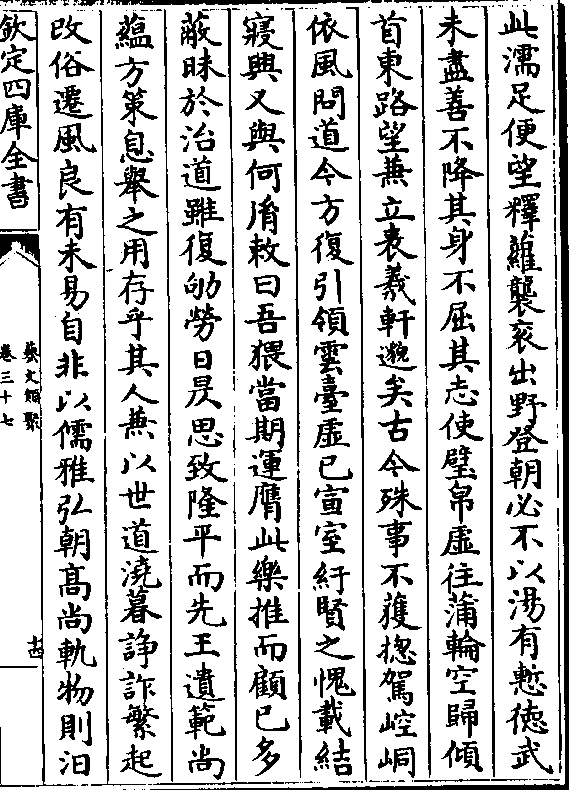 此濡足便望釋蘿襲衮出野登朝必不以湯有慙徳武
未盡善不降其身不屈其志使璧帛虚往蒲輪空歸傾
首東路望兼立表羲軒邈矣古今殊事不獲揔駕崆峒
依風問道今方復引領雲臺虚已宣室紆賢之愧載結
寢興又與何𦙍敕曰吾猥當期運膺此樂推而顧已多
蔽昧於治道雖復劬勞日昃思致隆平而先王遺範尚
藴方策息舉之用存乎其人兼以世道澆暮諍詐繁起
改俗遷風良有未易自非以儒雅弘朝髙尚軌物則汨
欽定四庫全書
藝文類聚
卷三十七
十四